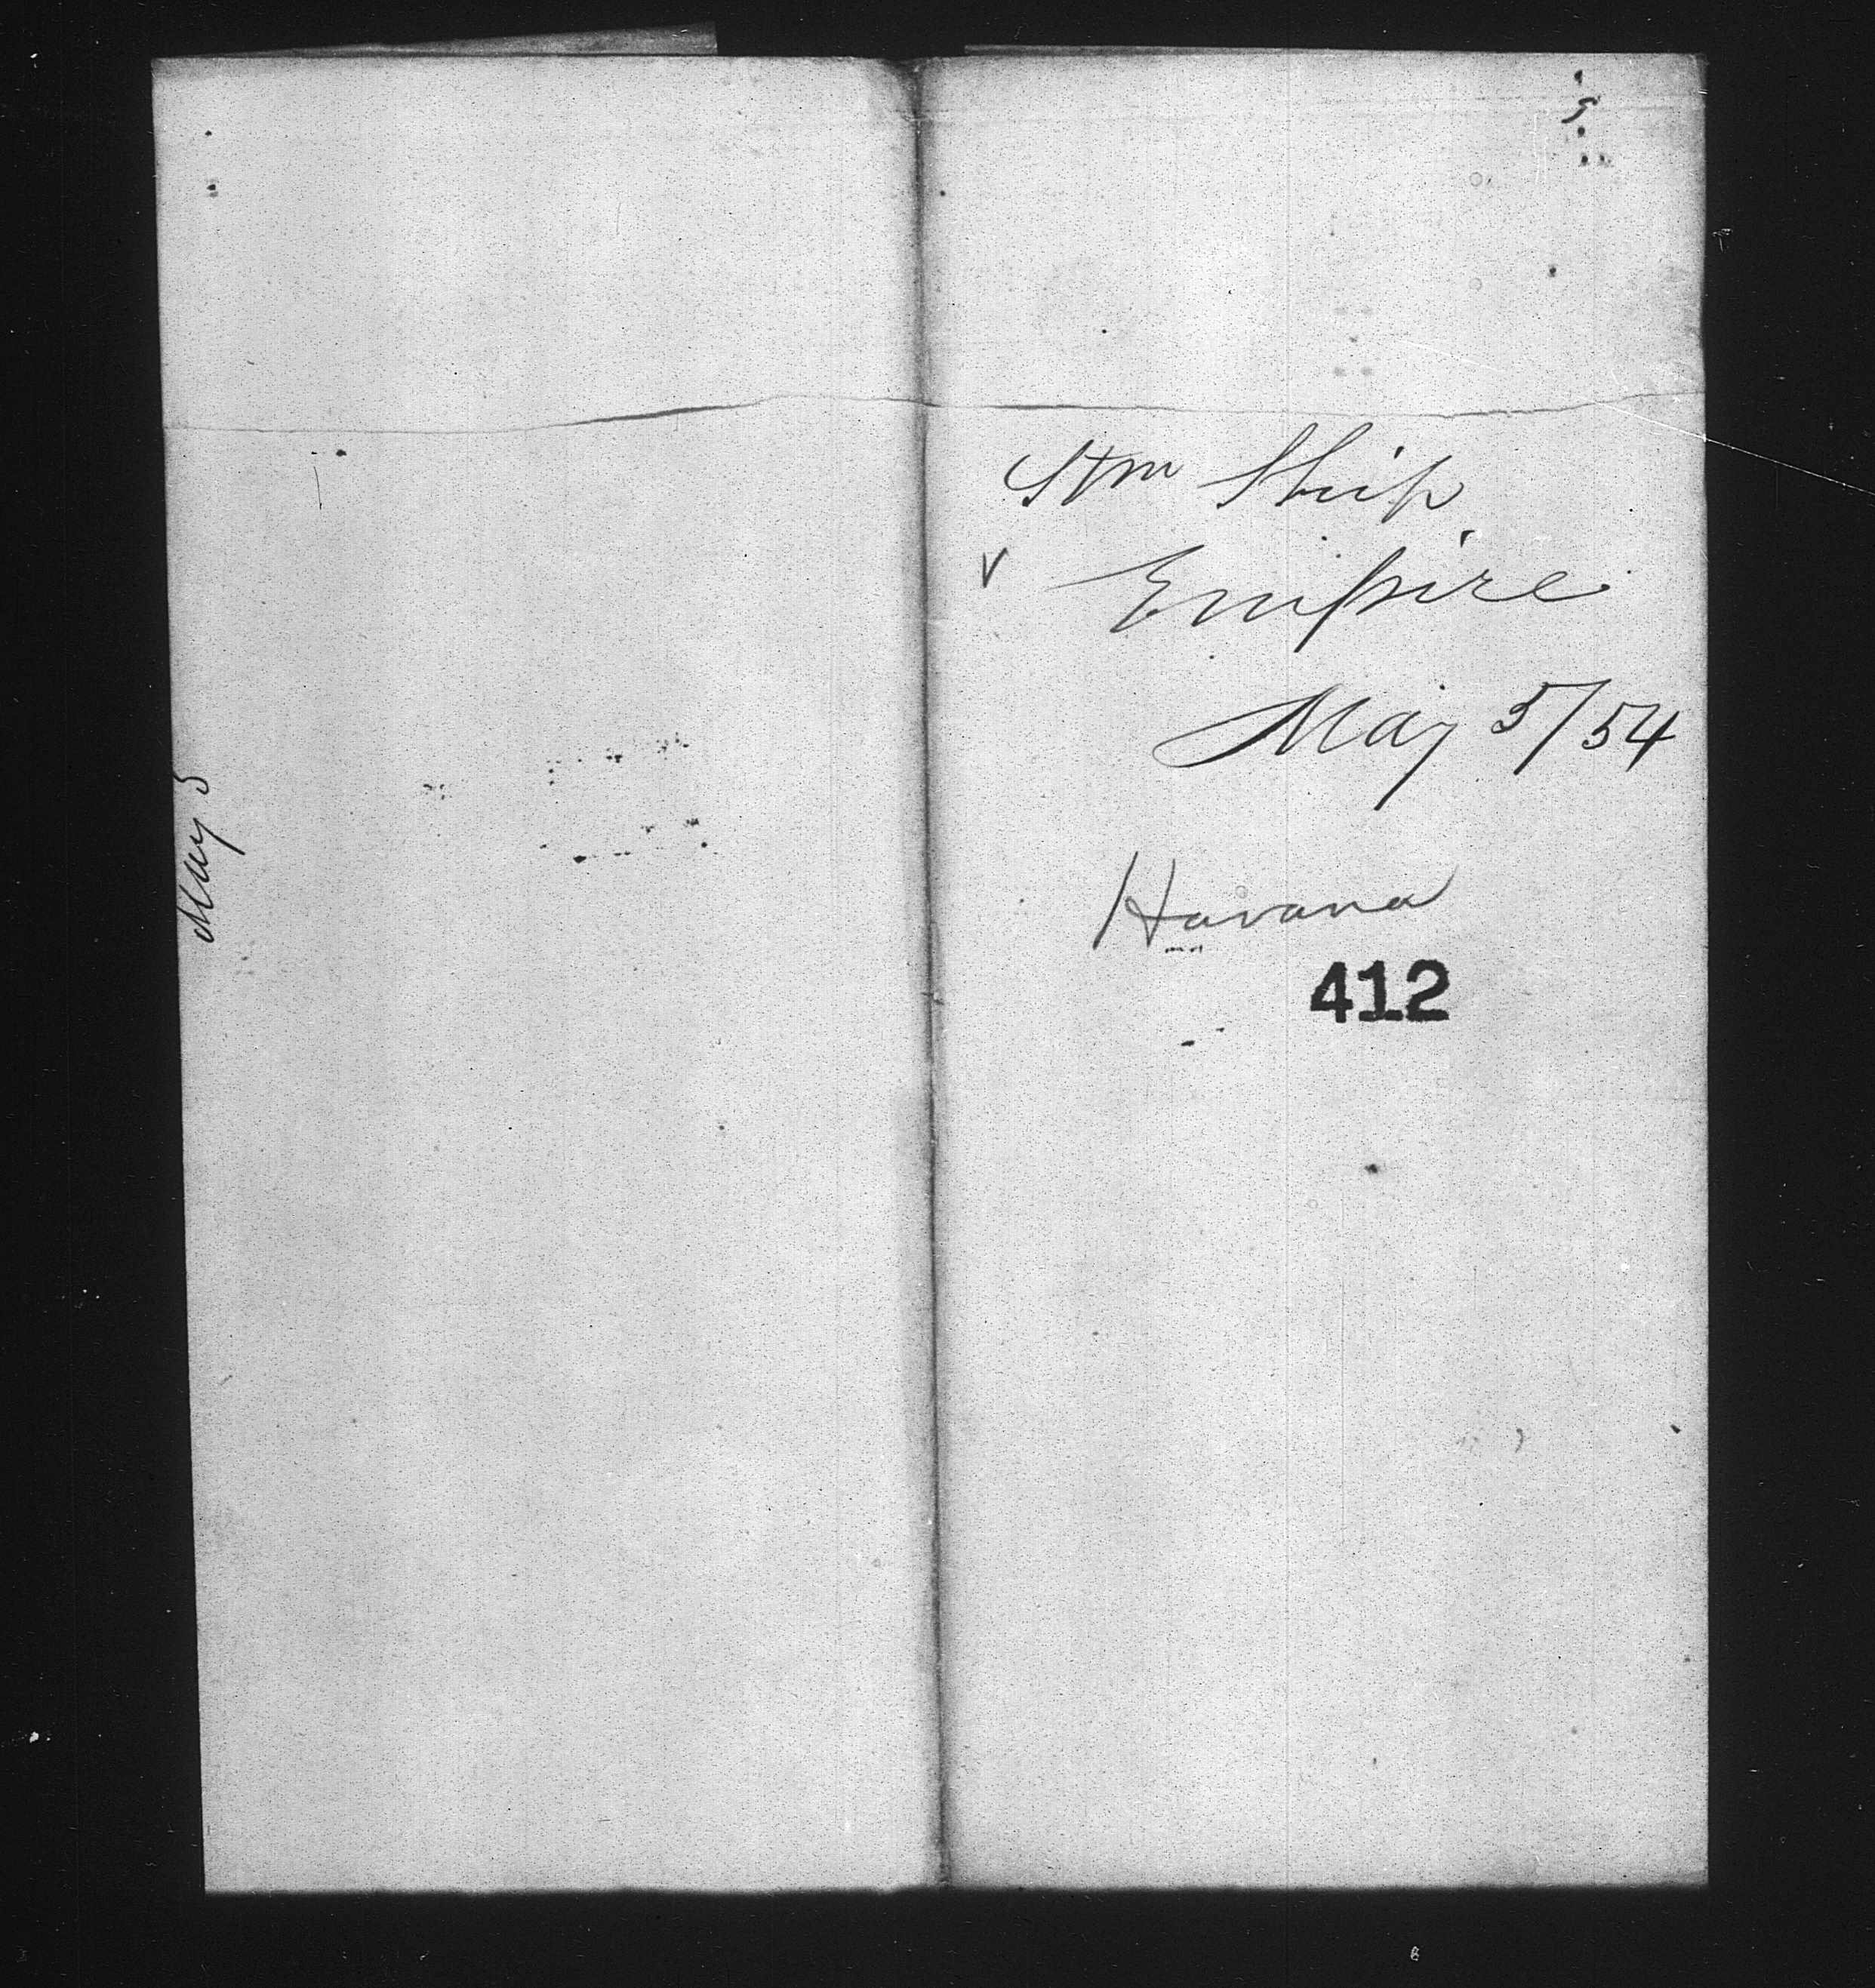 May 5
Stm Ship
v Empire
May 5/54
Havana
412